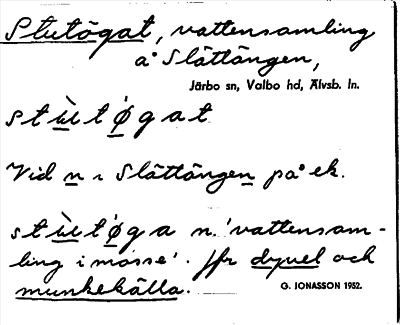 Stutögat, vattensamling
å Slättängen,
Järbo sn, Valbo hd, Älvsb. ln.
stùtǿgat
Vid n i Slättängen på ek.
stùtǿga n. 'vattensam-
ling i mosse'. Jfr dyvel och
munkekälla.
G. JONASSON 1952.